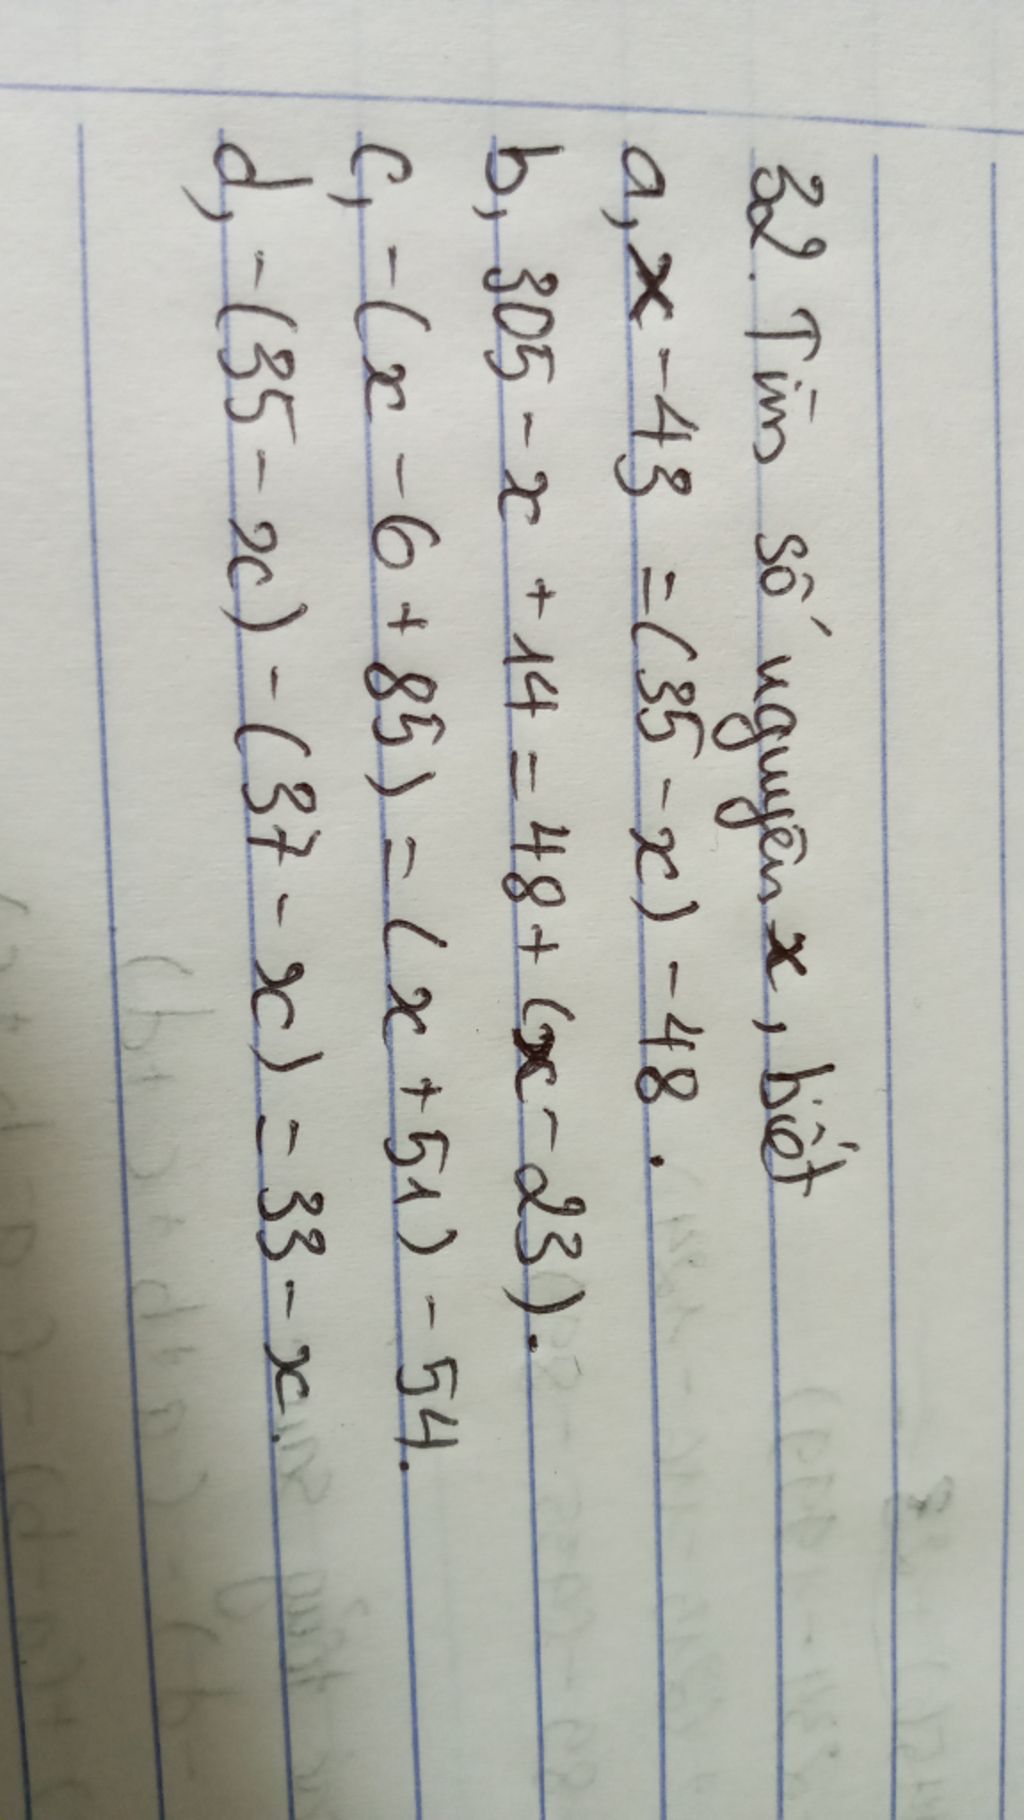 32. Tìm số nguyên x, biết
a, x - 43 = (35 - x) - 48.
b, 305 - x + 14 = 48 + (x - 23).
c, - (x - 6 + 85) = (x + 51) - 54.
d, - (35 - x) - (37 - x) = 33 - x.